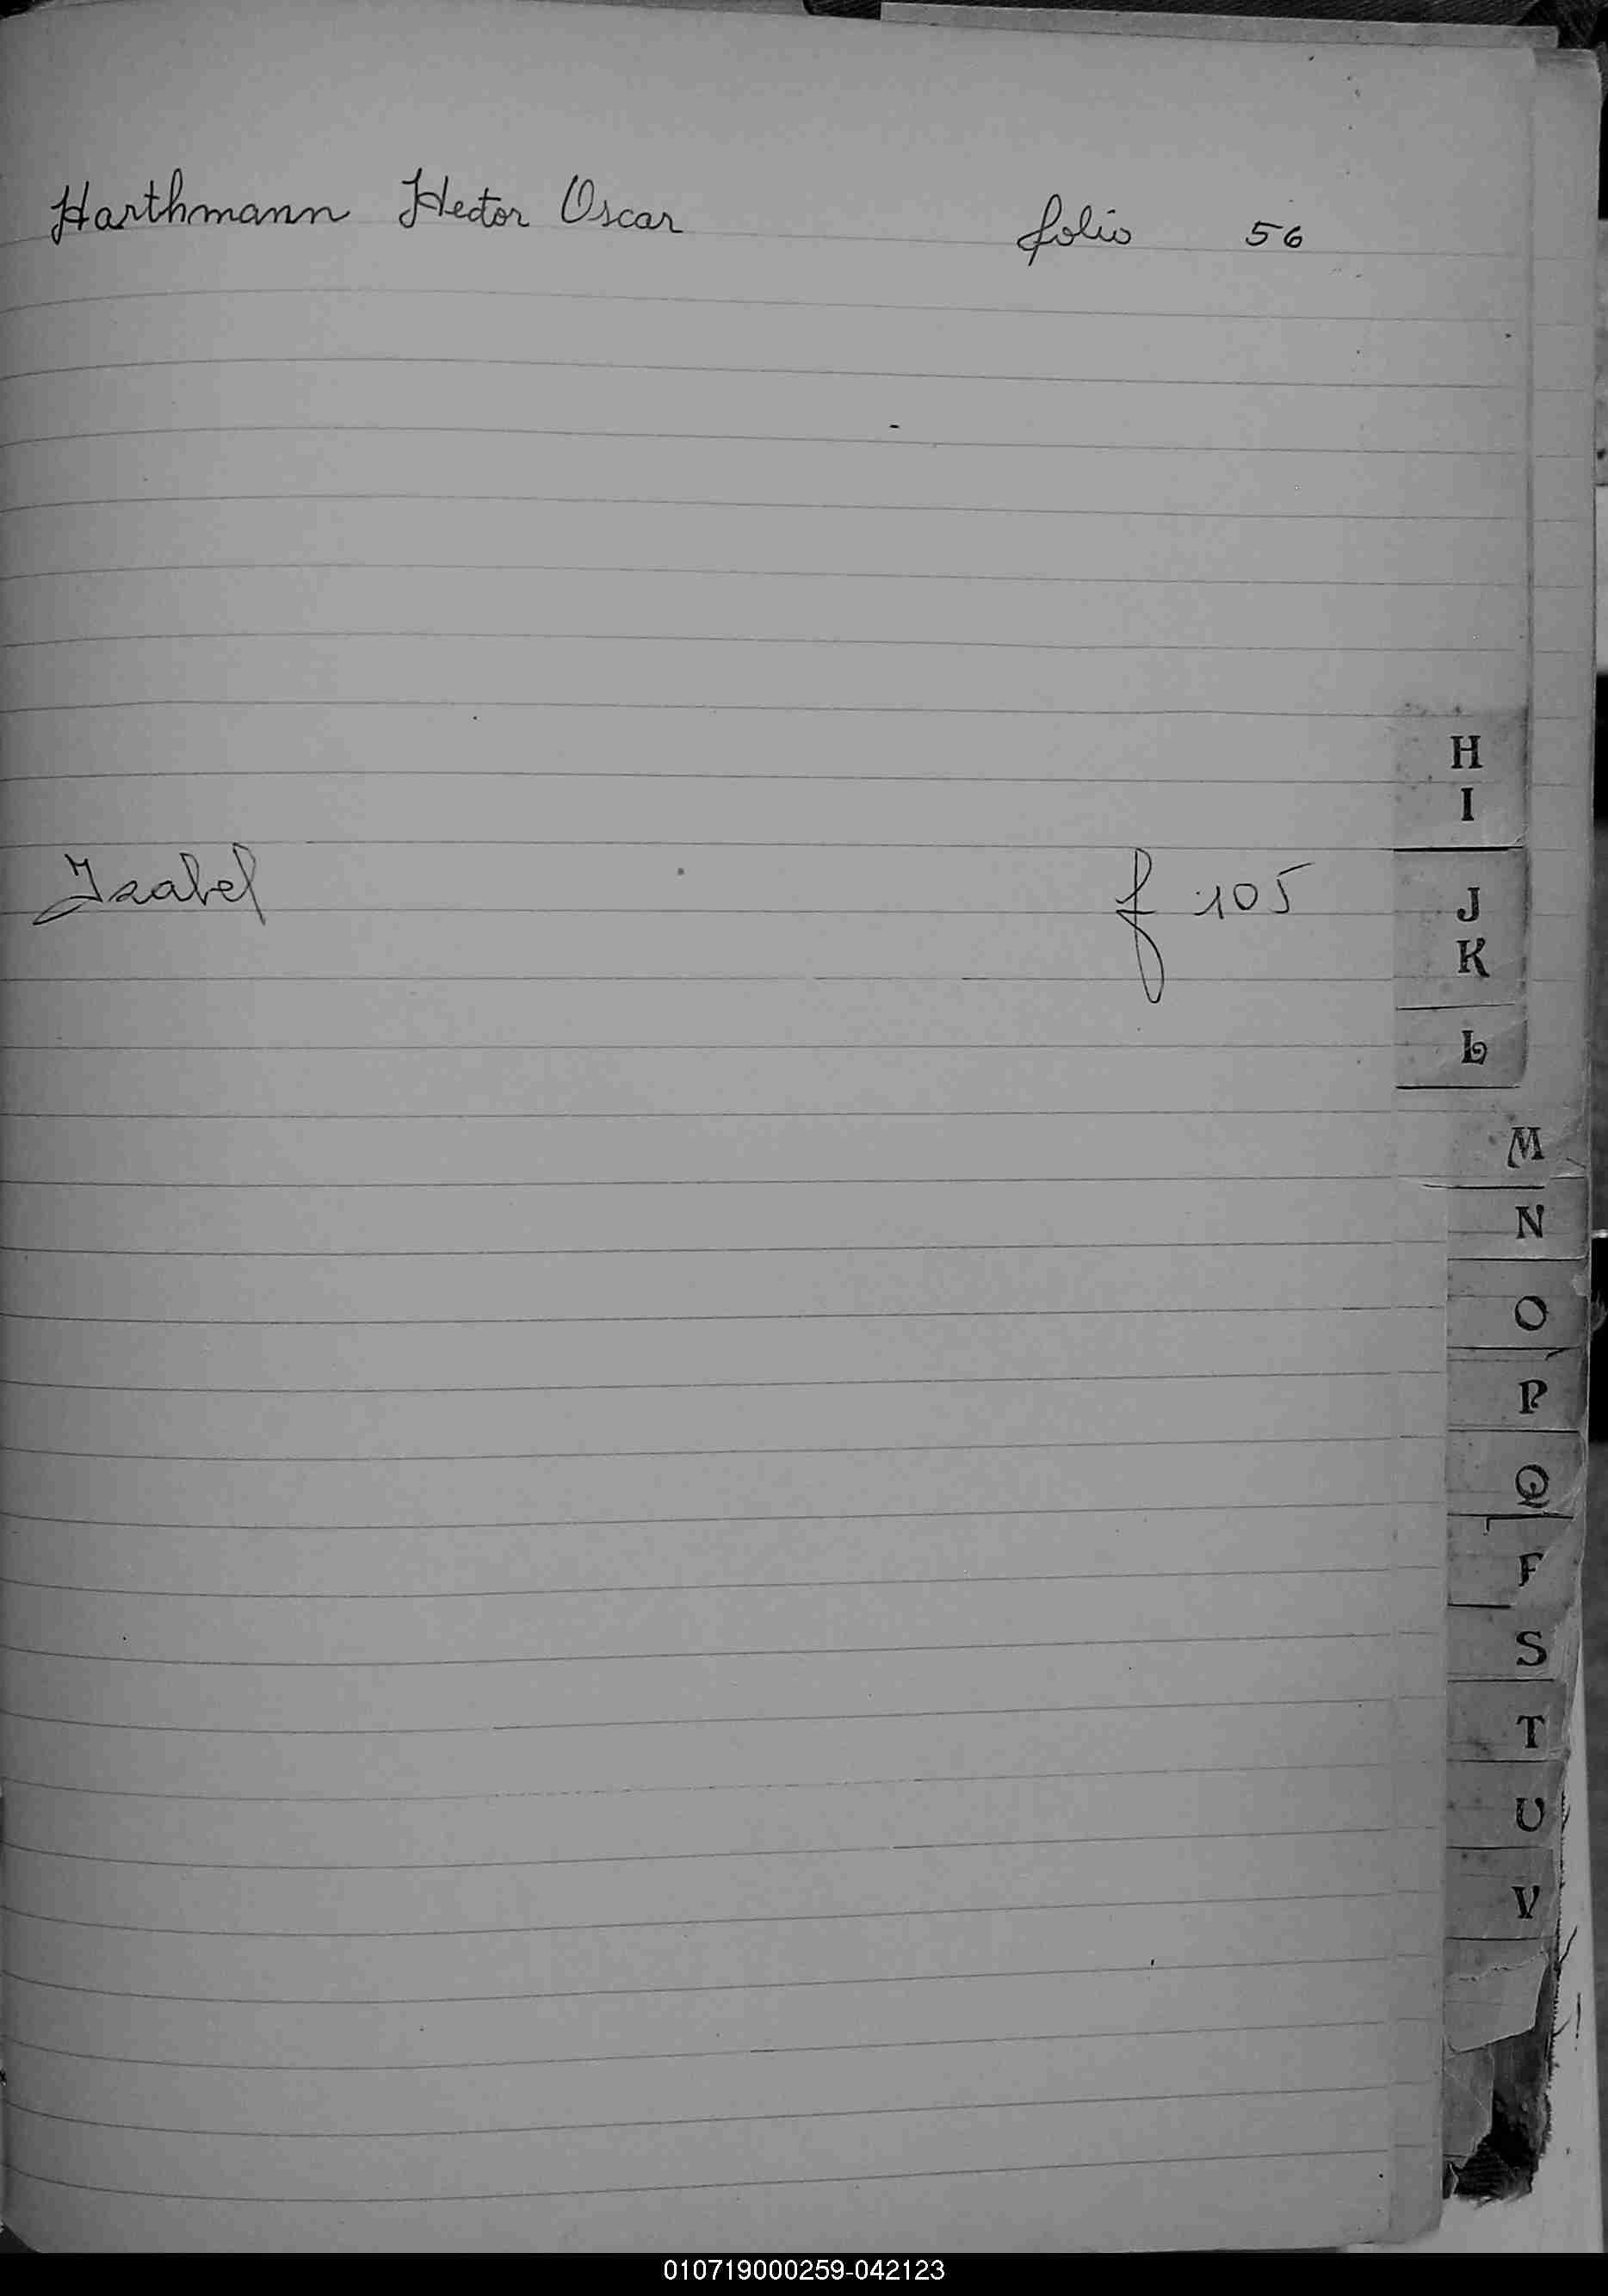 Harthmann Hector Oscar folio 56
H
I
Izabel f 105
J
K
L
M
N
O
P
Q
F
S
T
U
V
010719000259-042123